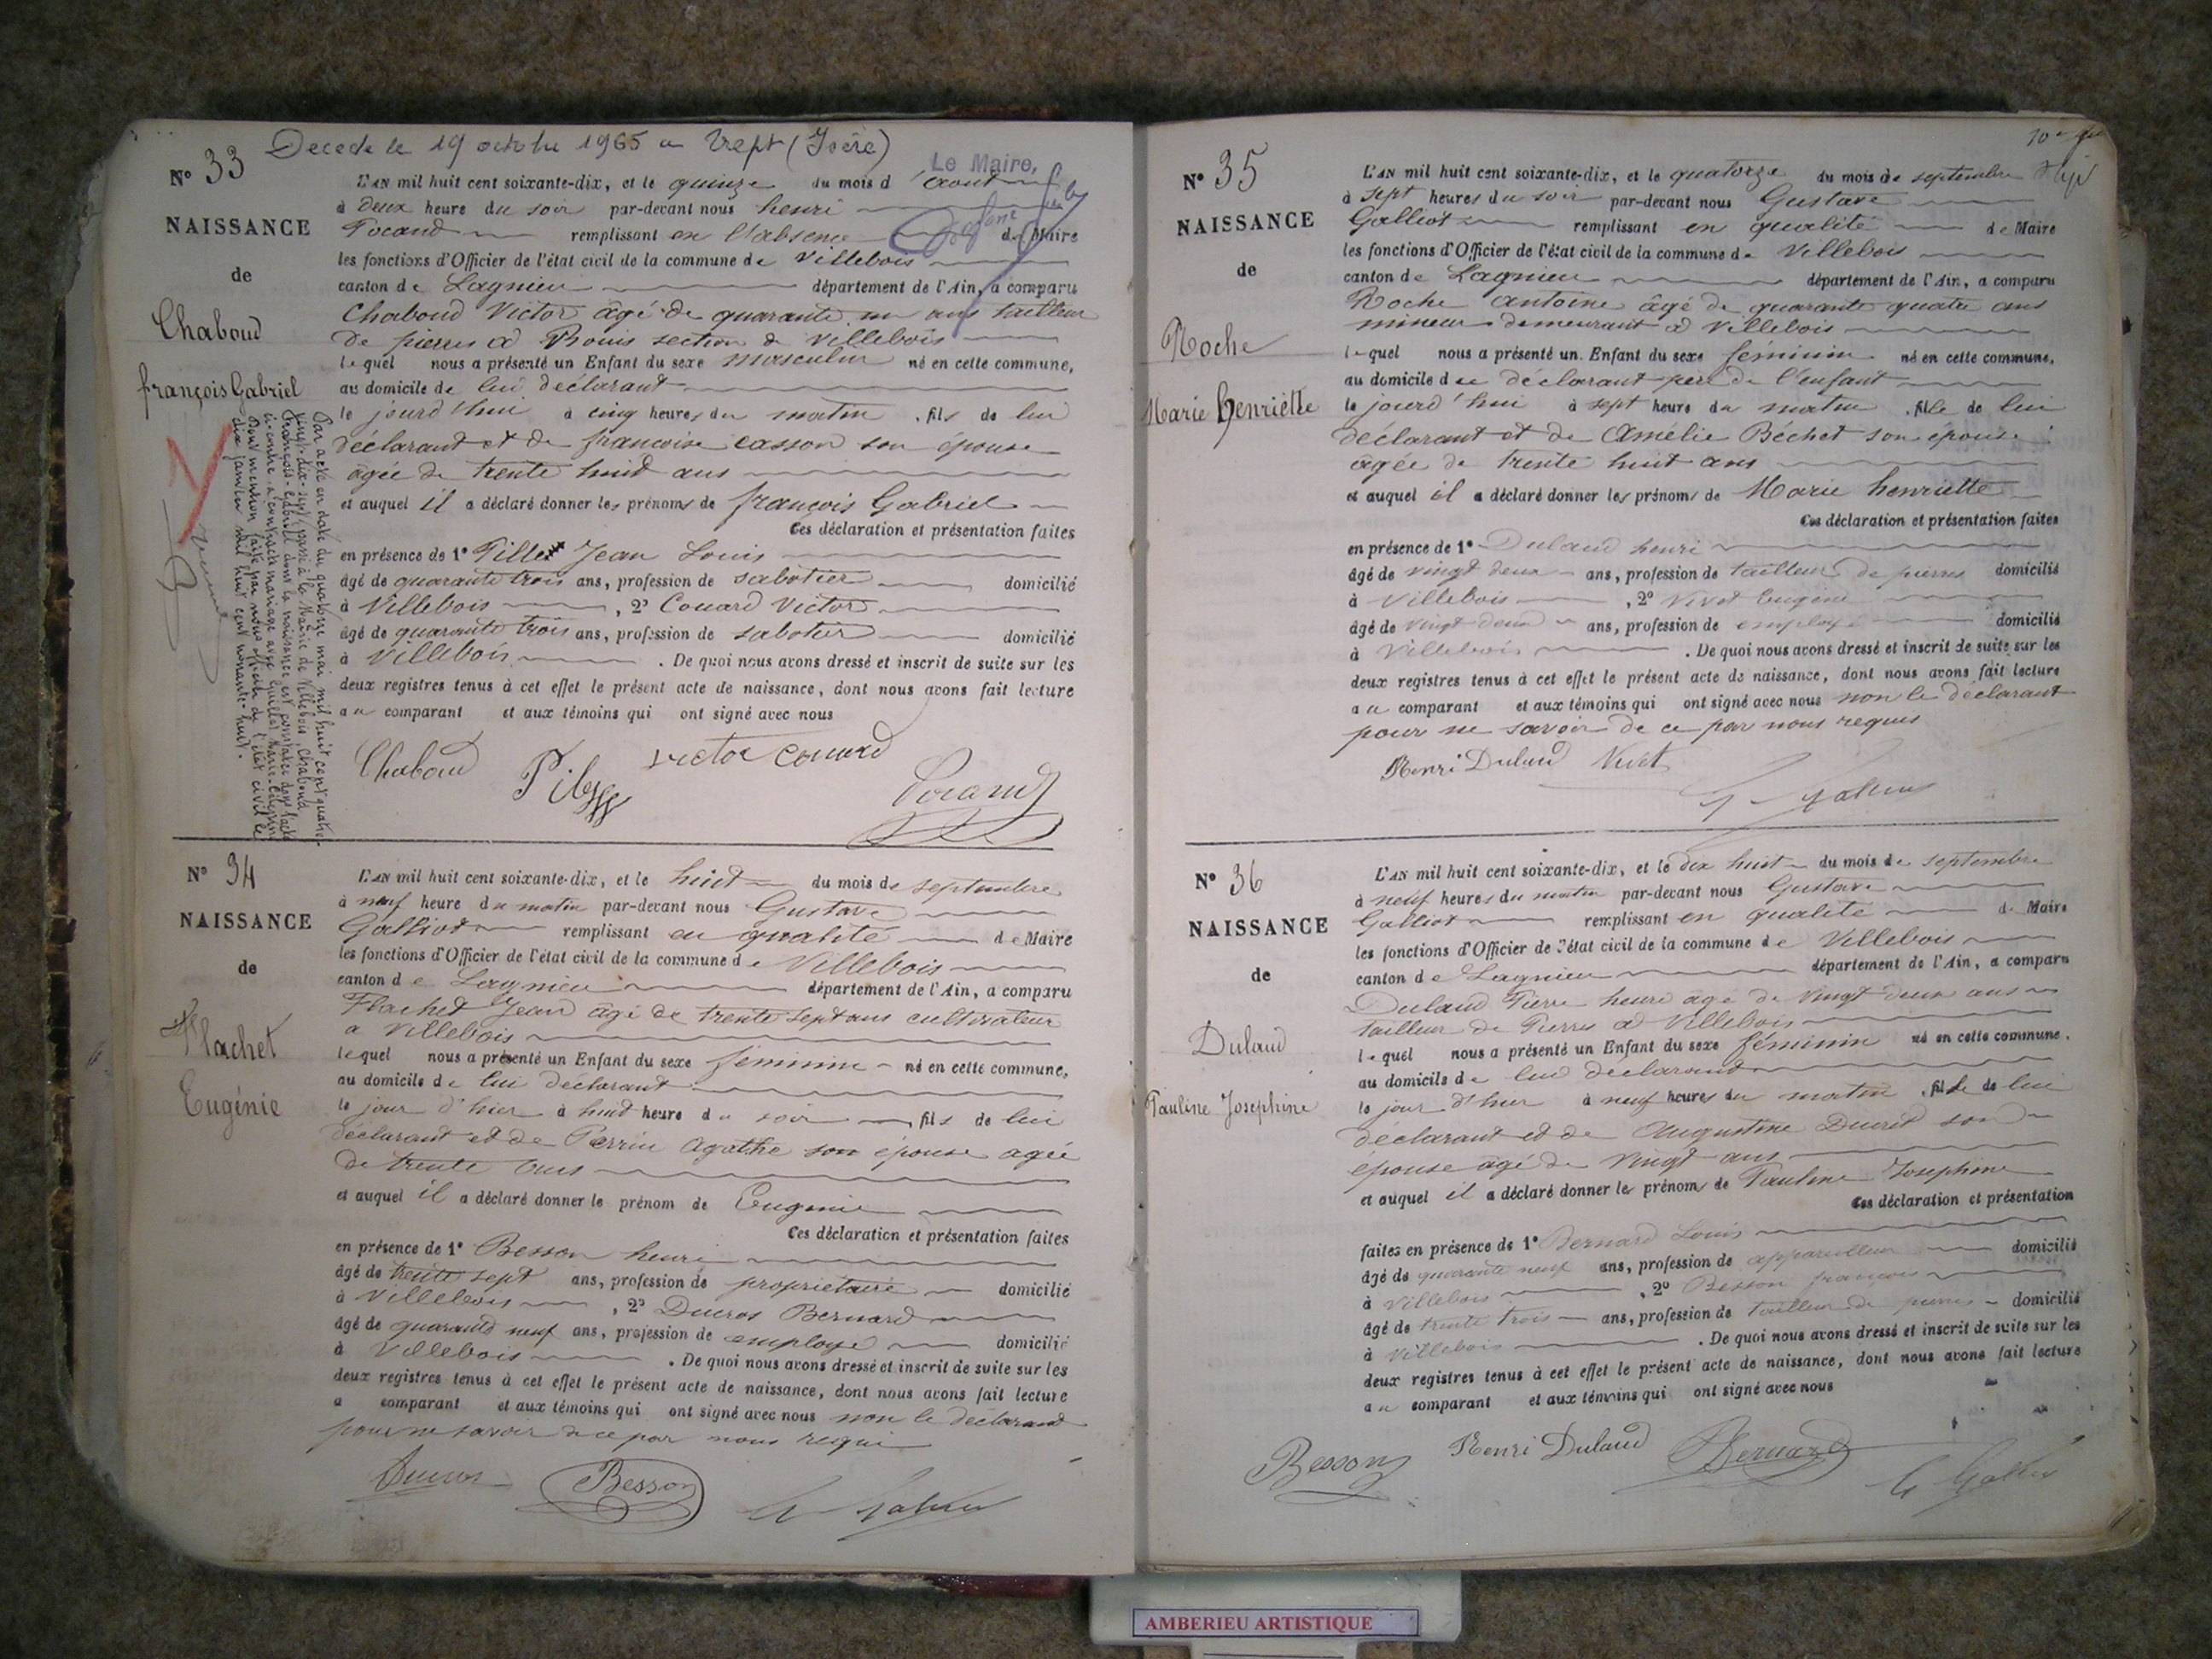 Décédé le 19 octobre 1965 a Trept (Isère)
Le Maire,
N° 33
NAISSANCE
de
Chaboud
françois Gabriel
L'AN mil huit cent soixante-dix, et le quinze du mois d'aout
à deux heure du soir par-devant nous henri
Tocand remplissant en l'absence de Maire
les fonctions d'Officier de l'état civil de la commune de Villebois
canton de Lagnieu département de l'Ain, a comparu
Chaboud Victor âgé de quarante un ans tailleur
de pierres à Bouis section de Villebois
lequel nous a présenté un Enfant du sexe masculin né en cette commune,
au domicile de lui déclarant
le jourd'hui à cinq heures du matin, fils de lui
déclarant et de francoise casson son épouse
âgée de trente huit ans
et auquel il a déclaré donner les prénoms de françois Gabriel
Ces déclaration et présentation faites
en présence de 1° Pillet Jean Louis
âgé de quarante trois ans, profession de sabotier domicilié
à Villebois, 2° Couard Victor
âgé de quarante trois ans, profession de sabotier domicilié
à Villebois. De quoi nous avons dressé et inscrit de suite sur les
deux registres tenus à cet effet le présent acte de naissance, dont nous avons fait lecture
au comparant et aux témoins qui ont signé avec nous
Chaboud
victor couard
Par acte en date du quatre mai mil huit cent quatre-
vingt-dix-sept, passé à la Mairie de Villebois, Chaboud
François-Gabriel dont la naissance est constatée dans l'acte
ci-contre a contracté mariage avec Guillot Marie-
Dont mention faite par nous officier de l'état civil le
dix janvier mil huit cent nonante-huit.
N° 34
NAISSANCE
de
Flachet
Eugénie
L'AN mil huit cent soixante-dix, et le huit du mois de septembre
à neuf heure du matin par-devant nous Gustave
Galliot remplissant en qualité de Maire
les fonctions d'Officier de l'état civil de la commune de Villebois
canton de Lagnieu département de l'Ain, a comparu
Flachet Jean âgé de trente sept ans cultivateur
a Villebois
lequel nous a présenté un Enfant du sexe féminin né en cette commune,
au domicile de lui déclarant
le jour d'hier à huit heure du soir, fils de lui
déclarant et de Perrin Agathe son épouse agée
de trente ans
et auquel il a déclaré donner le prénom de Eugenie
Ces déclaration et présentation faites
en présence de 1° Besson henri
âgé de trente sept ans, profession de propriétaire domicilié
à Villebois, 2° Ducros Bernard
âgé de quarante neuf ans, profession de employé domicilié
à Villebois. De quoi nous avons dressé et inscrit de suite sur les
deux registres tenus à cet effet le présent acte de naissance, dont nous avons fait lecture
a comparant et aux témoins qui ont signé avec nous non le déclarant
pour ne savoir de ce par nous requi
Ducros Besson G Galliot
N° 35
NAISSANCE
de
Roche
Marie henriette
L'AN mil huit cent soixante-dix, et le quatorze du mois de septembre
à sept heures du soir par-devant nous Gustave
Galliot remplissant en qualité de Maire
les fonctions d'Officier de l'état civil de la commune de Villebois
canton de Lagnieu département de l'Ain, a comparu
Roche Antoine âgé de quarante quatre ans
mineur demeurant à Villebois
lequel nous a présenté un Enfant du sexe féminin né en cette commune,
au domicile du déclarant père de l'enfant
le jourd'hui à sept heure du matin, fille de lui
déclarant et de Amélie Béchet son épouse
âgée de trente huit ans
et auquel il a déclaré donner les prénoms de Marie henriette
Ces déclaration et présentation faites
en présence de 1° Dulaud henri
âgé de vingt deux ans, profession de tailleur de pierres domicilié
à Villebois, 2° Vivet Eugène
âgé de vingt deux ans, profession de employé domicilié
à Villebois. De quoi nous avons dressé et inscrit de suite sur les
deux registres tenus à cet effet le présent acte de naissance, dont nous avons fait lecture
au comparant et aux témoins qui ont signé avec nous non le déclarant
pour ne savoir de ce par nous requis
Henri Dulaud Vivet
N° 36
NAISSANCE
de
Dulaud
Pauline Josephine
L'AN mil huit cent soixante-dix, et le dix huit du mois de septembre
à neuf heures du matin par-devant nous Gustave
Galliot remplissant en qualité de Maire
les fonctions d'Officier de l'état civil de la commune de Villebois
canton de Lagnieu département de l'Ain, a comparu
Dulaud Pierre henri âgé de vingt deux ans
tailleur de Pierres à Villebois
lequel nous a présenté un Enfant du sexe féminin né en cette commune.
au domicile de lui déclarant
le jour d'hier à neuf heures du matin, fille de lui
déclarant et de Augustine Ducret son
épouse âgé de vingt ans
et auquel il a déclaré donner les prénoms de Pauline Josephine
Ces déclaration et présentation
faites en présence de 1° Bernard Louis
âgé de quarante neuf ans, profession de appareilleur domicilié
à Villebois, 2° Besson françois
âgé de trente trois ans, profession de tailleur de pierres domicilié
à Villebois. De quoi nous avons dressé et inscrit de suite sur les
deux registres tenus à cet effet le présent acte de naissance, dont nous avons fait lecture
au comparant et aux témoins qui ont signé avec nous
Besson Henri Dulaud Bernard G Galliot
AMBERIEU ARTISTIQUE